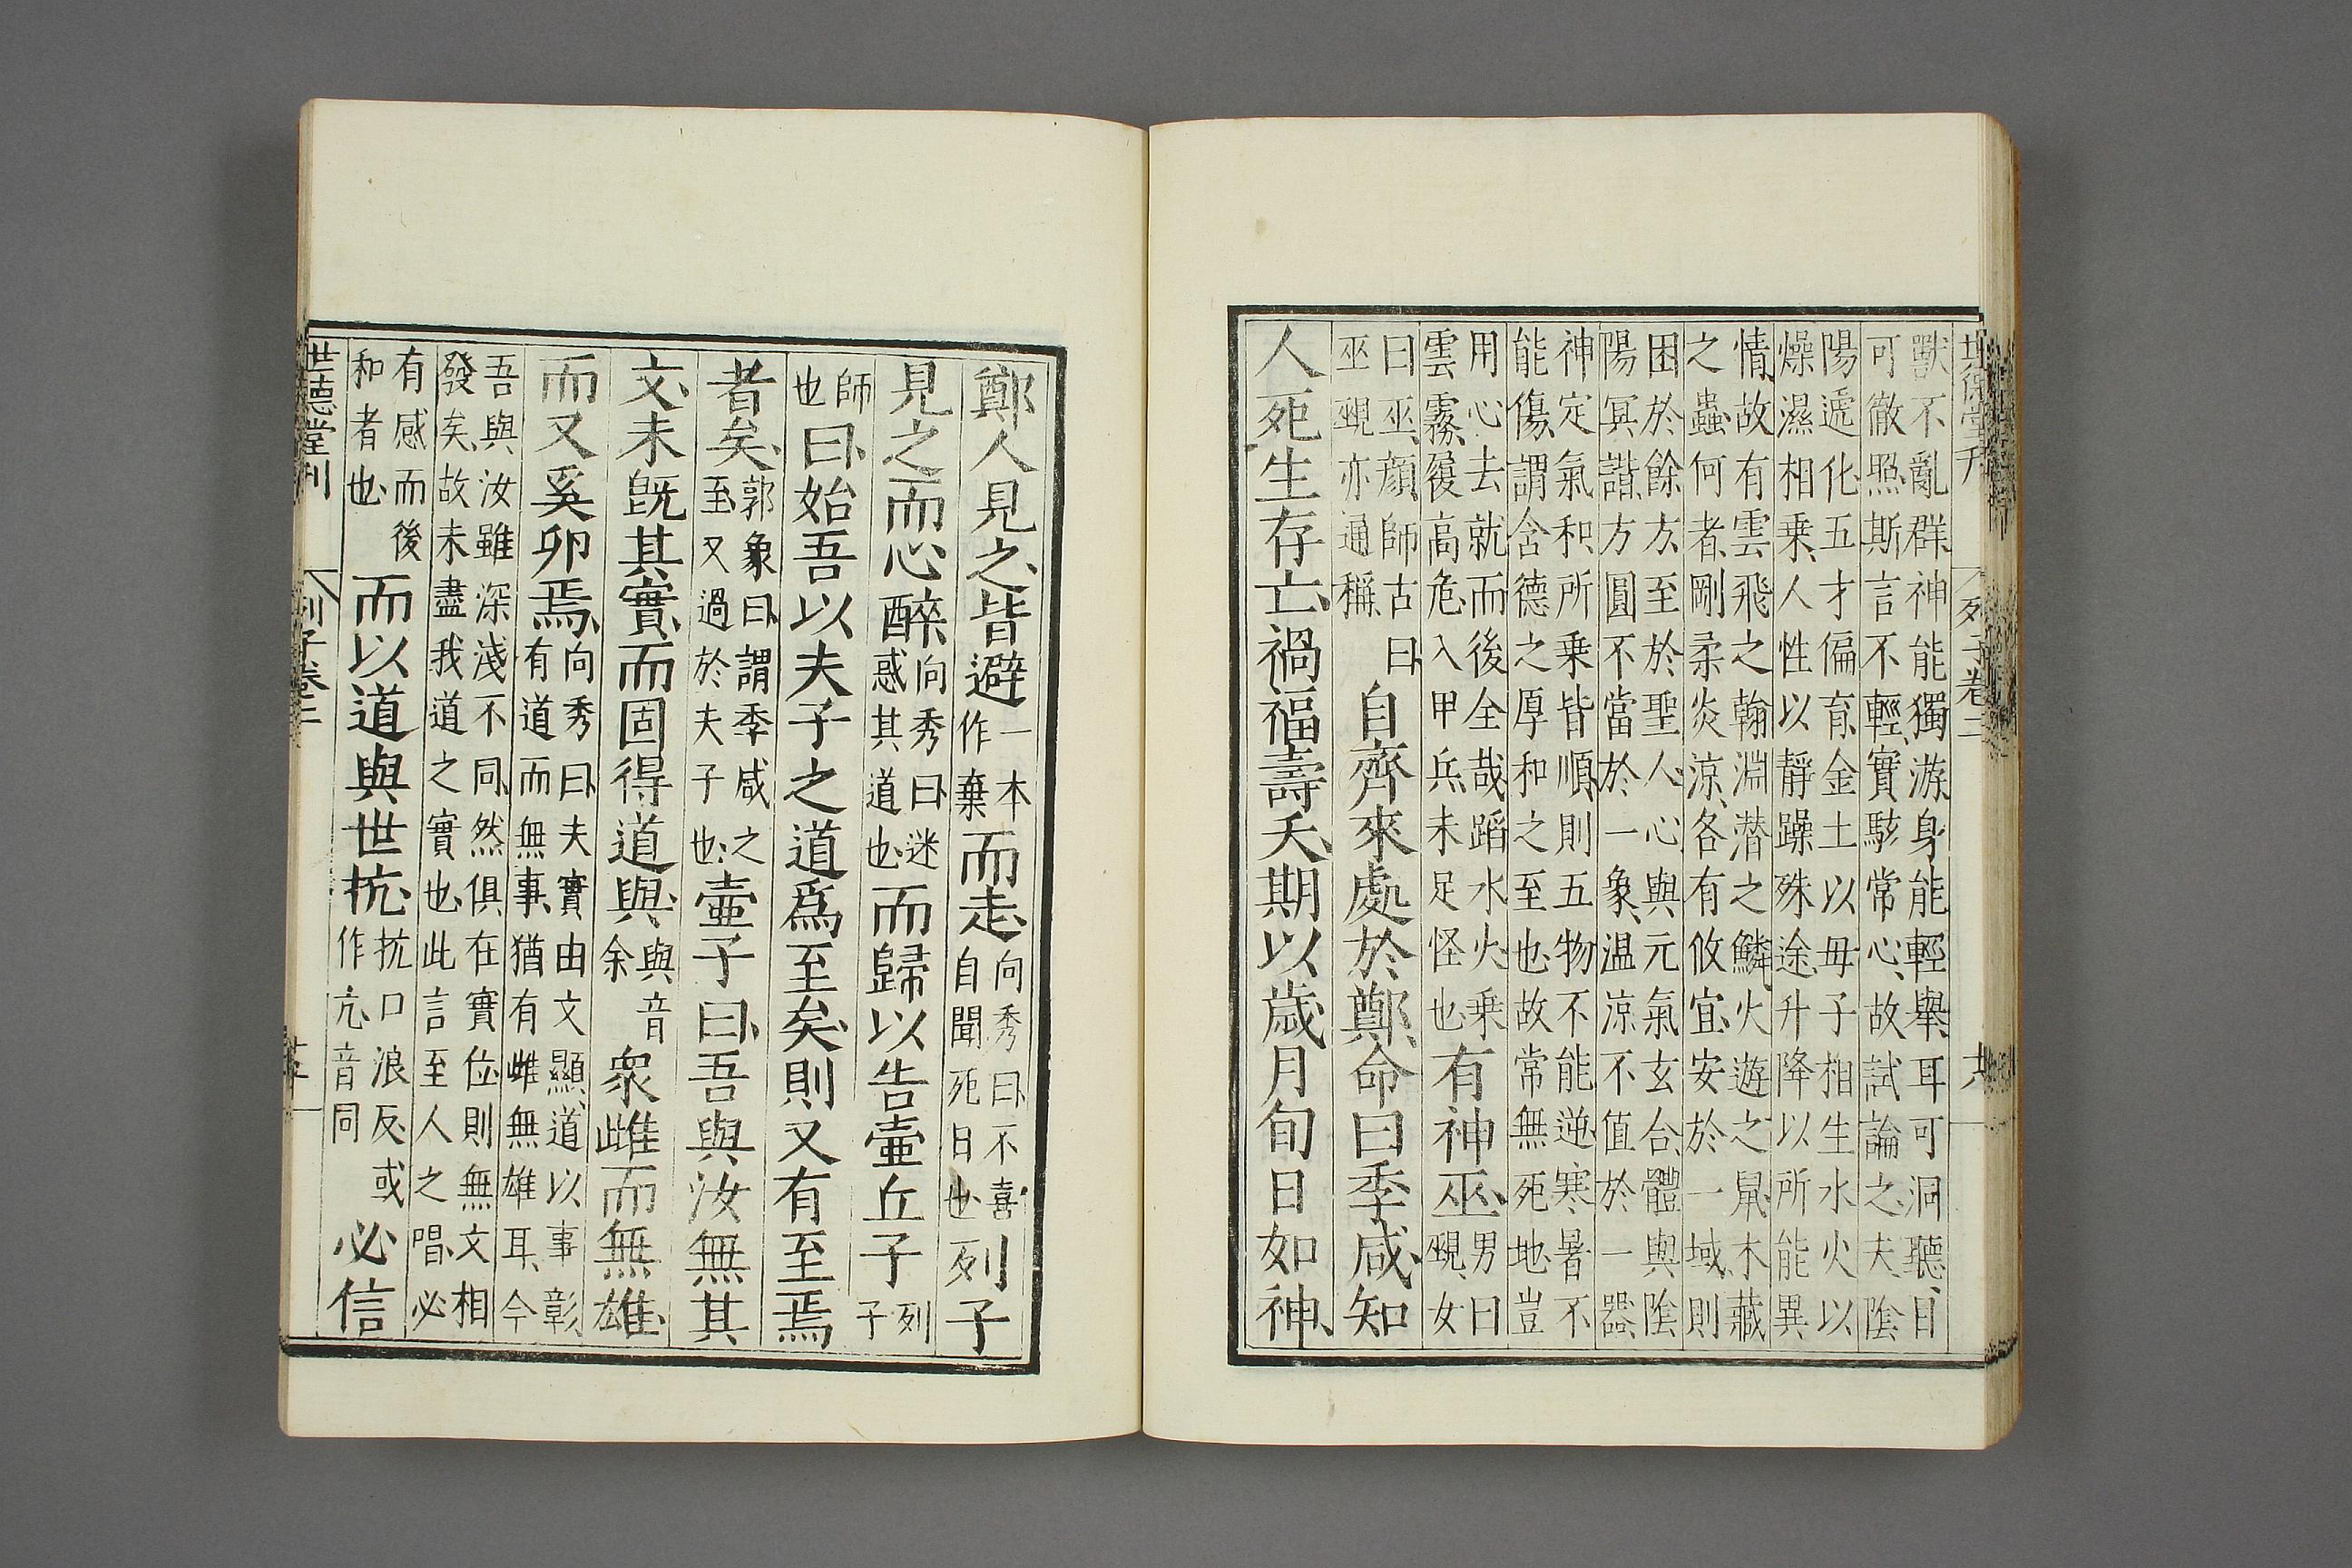 世德堂刊 列子卷二
獸不亂群神能獨游身能輕舉耳可洞聽目
可徹照斯言不輕實駭常心故試論之夫陰
陽遞化五才偏育金土以母子相生水火以
燥濕相乗人性以靜躁殊途升降以所能異
情故有雲飛之翰淵潜之鱗火遊之鼠木藏
之蟲何者剛柔炎涼各有攸宜安於一域則
困於餘方至於聖人心與元氣玄合體與陰
陽冥諧方圓不當於一象温涼不值於一器
神定氣和所乗皆順則五物不能逆寒暑不
能傷謂含德之厚和之至也故常無死地豈
用心去就而後全哉蹈水火乗雲霧履高危入甲兵未足怪也有神巫男曰覡女
曰巫顔師古曰巫覡亦通稱自齊來處於鄭命曰季咸知
人死生存亡禍福壽夭期以歲月旬日如神
鄭人見之皆避一本作棄而走向秀曰不喜自聞死日也列子
見之而心醉向秀曰迷惑其道也而歸以告壷丘子列子
師也曰始吾以夫子之道爲至矣則又有至焉
者矣郭象曰謂季咸之至又過於夫子也壷子曰吾與汝無其
文未旣其實而固得道與與音余衆雌而無雄
而又奚卵焉向秀曰夫實由文顯道以事彰有道而無事猶有雌無雄耳今
吾與汝雖深淺不同然俱在實位則無文相
發矣故未盡我道之實也此言至人之唱必
有感而後和者也而以道與世抗抗口浪反或作亢音同必信
世德堂刊 列子卷二